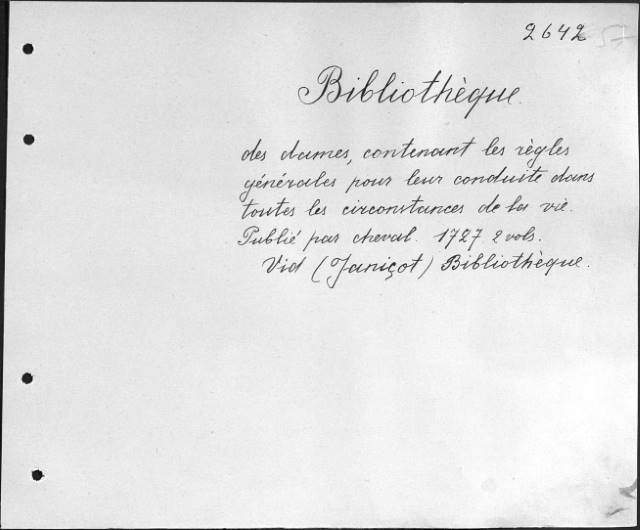 2642
Bibliothèque
des dames, contenant les règles
générales pour leur conduite dans
toutes les circonstances de la vie.
Publié par cheval. 1727 2 vols.
Vid (Janiçot) Bibliothèque.